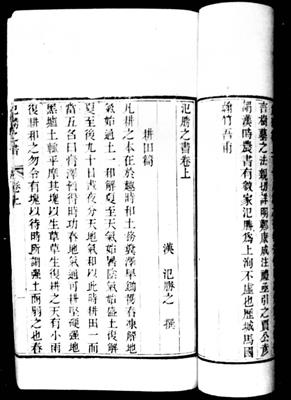 言樹藝之法親切詳明鄭康成注禮亟引之賈公彥
謂漢時農書有數家氾勝為上洵不虛也歷城馬國
翰竹吾甫
氾勝之書卷上
漢 氾勝之 撰
耕田篇
凡耕之本在於趣時和土務糞澤早鋤穫春凍解地
氣始通土一和解夏至天氣始暑陰氣始盛土復解
夏至後九十日晝夜分天地氣和以此時耕田一而
當五名曰膏澤皆得時功春地氣通可耕堅硬強地
黑壚土輒平摩其塊以生草草生復耕之天有小雨
復耕和之勿令有塊以待時所謂強土而弱之也春
氾勝之書 卷上